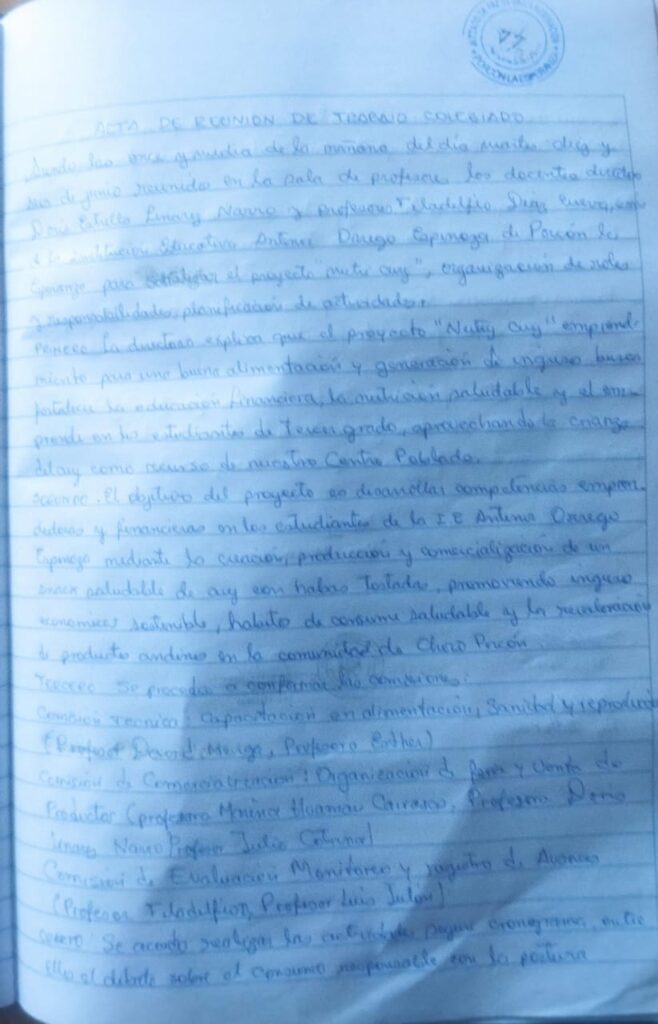 ACTA DE REUNION DE TRABAJO COLEGIADO
Siendo las once y media de la mañana del día martes diez y
seis de junio reunidos en la sala de profesores los docentes
Doris Estella Linares Narro y profesor Teladelfio Díaz
de la institución Educativa Antenor Orrego Espinoza de Porcón la
Esperanza para el proyecto "nutri cuy", organización de roles
y responsabilidades, planificación de actividades.
PRIMERO La directora explica que el proyecto "Nutry Cuy" emprendi-
miento para una buena alimentación y generación de ingreso busca
fortalecer la educación financiera, la nutrición saludable y el em-
prende en los estudiantes de Tercer grado, aprovechando la crianza
del cuy como recurso de nuestro Centro Poblado.
SEGUNDO. El objetivo del proyecto es desarrollar competencias empren-
dedoras y financieras en los estudiantes de la I.E Antenor Orrego
Espinoza mediante la producción y comercialización de un
snack saludable de cuy con habas Tostada, promoviendo ingreso
economicos sostenible, habito de consumo saludable y la revaloración
de producto andino en la comunidad de Porcón.
TERCERO Se procedio a conformar las comisiones:
Comisión Tecnica: Capacitación en alimentación, Sanidad y reproducción
(Profesor Profesora Esther)
Comisión de Comercialización: Organización de feria y venta de
Productos (profesora Huaman Carrasco, Profesora Doris
Linares Narro Profesor Julio
Comisión de Evaluación Monitoreo y registro de Avances
(Profesor Teladelfio, Profesor Luis
Se acordó realizar las actividades según cronograma, entre
ellos el debate sobre el consumo responsable con la postura